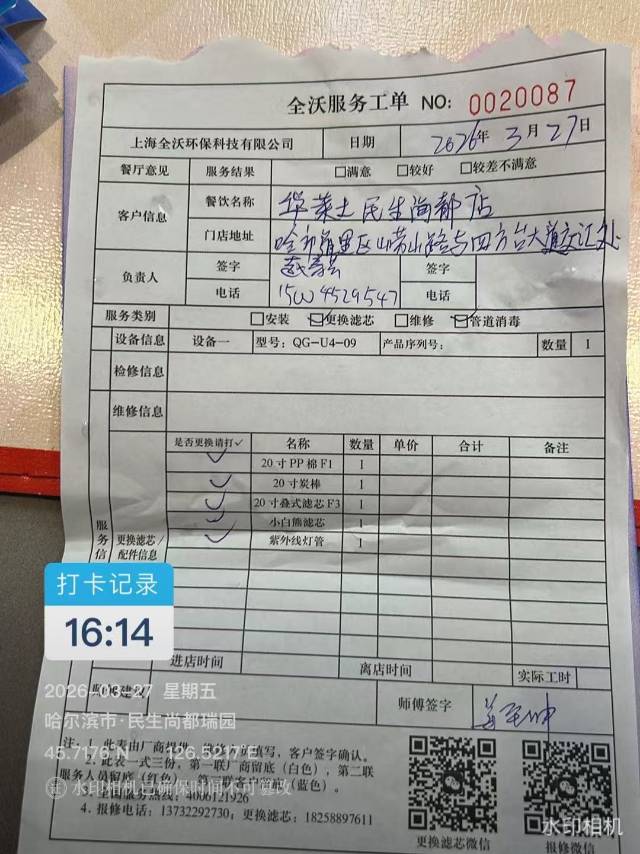 全沃服务工单 NO: 0020087
上海全沃环保科技有限公司 日期 2026年 3月 27日
餐厅意见 服务结果 □满意 □较好 □较差不满意
客户信息 餐饮名称 华莱士民生尚都店
门店地址 哈市香里区山崂山路与四方台大道交汇处
负责人 签字 签字
电话 150 4529547 电话
服务类别 □安装 ☑更换滤芯 □维修 ☑管道消毒
设备信息 设备一 型号: QG-U4-09 产品序列号: 数量 1
检修信息
维修信息
是否更换请打✓ 名称 数量 单价 合计 备注
✓ 20寸PP棉F1 1
✓ 20寸炭棒 1
✓ 20寸叠式滤芯F3 1
✓ 小白熊滤芯 1
✓ 紫外线灯管 1
服务信
更换滤芯/配件信息
打卡记录
16:14
进店时间 离店时间 实际工时
2026-03-27 星期五
师傅签字
哈尔滨市·民生尚都瑞园
45.7176°N 126.5217°E
填写，客户签字确认。
2. 此表一式三份，第一联厂商留底（白色），第二联
服务人员留底（红色），第三联客户留底（蓝色）。
水印相机已确保时间不可篡改
3. 全国服务热线: 4006121926
4. 报修电话: 13732292730; 更换滤芯: 18258897611
更换滤芯微信 报修微信
水印相机